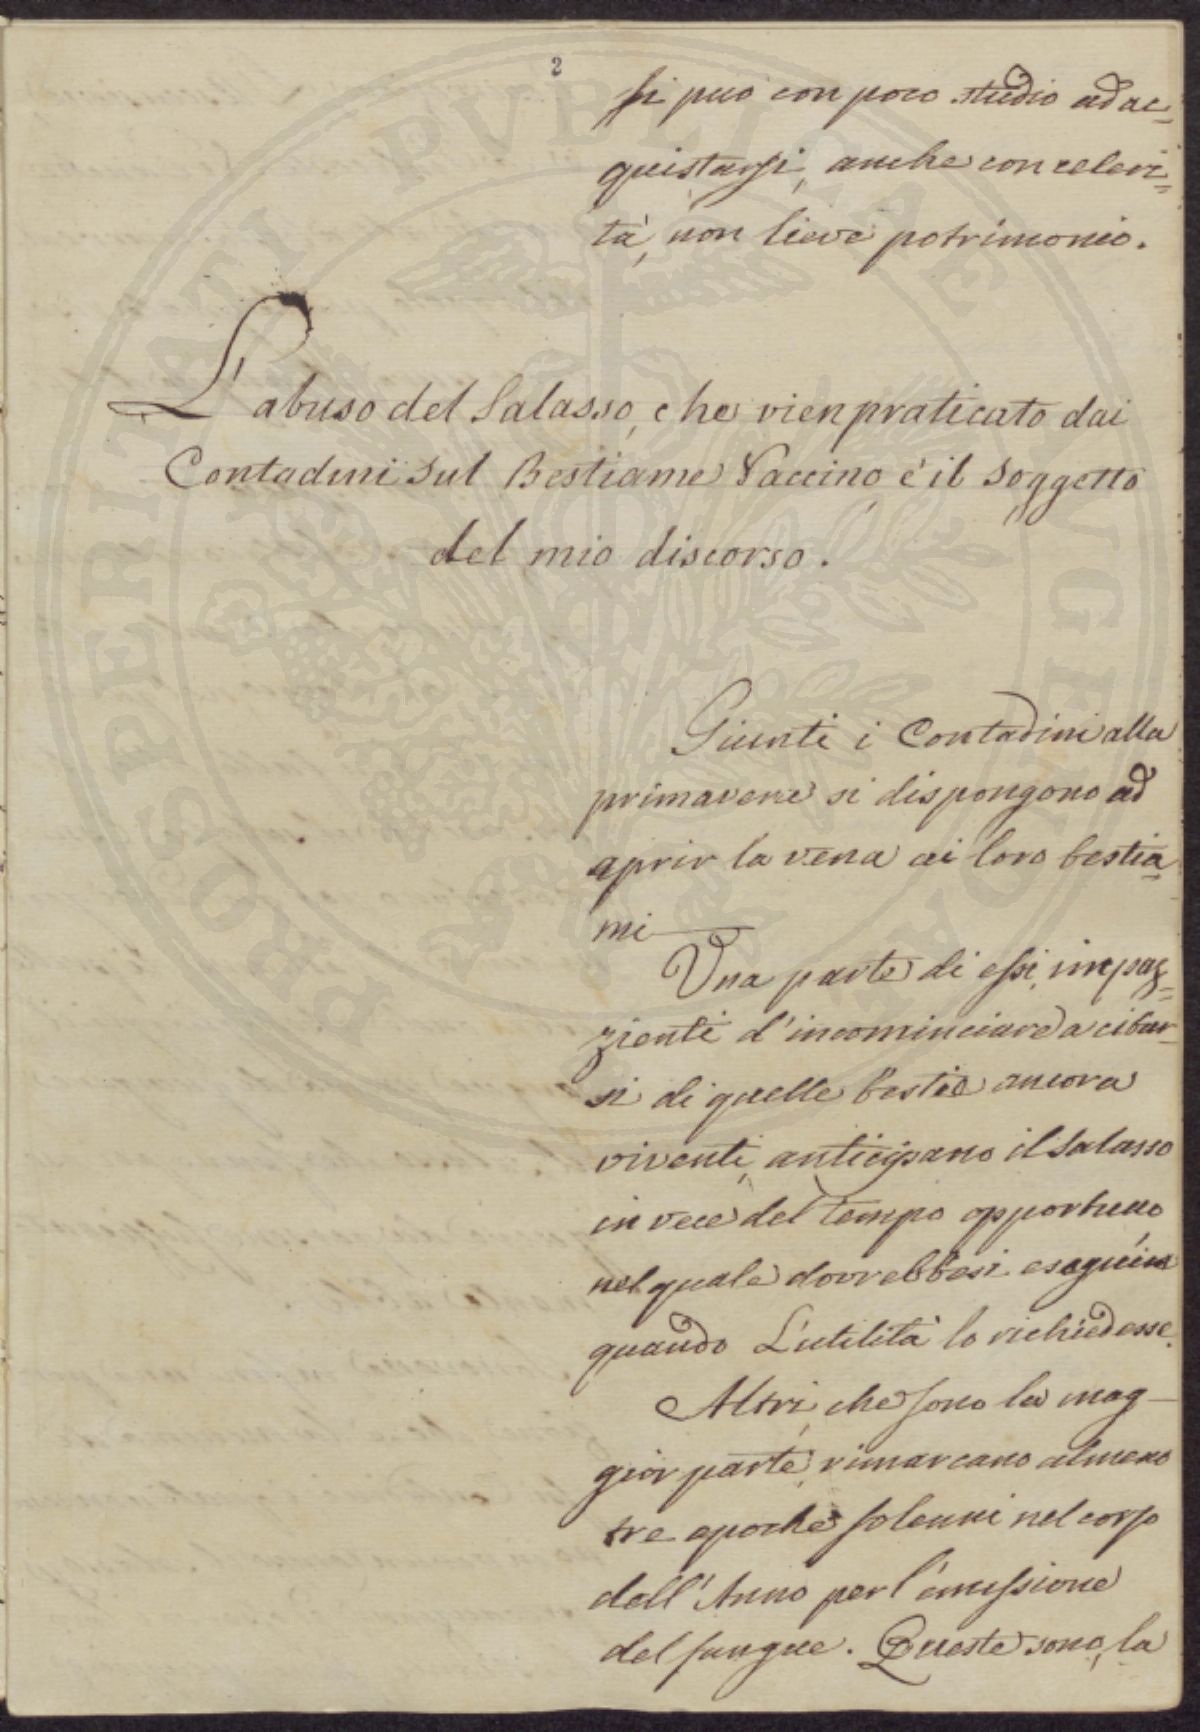 2
si può con poco studio ad ac=
quistarsi, anche con celeri=
tà, non lieve potrimonio.
L'abuso del Salasso, che vien praticato dai
Contadini sul Bestiame Vaccino è il soggetto
del mio discorso.
Giunti i Contadini alla
primavera si dispongono ad
aprir la vena ai loro bestia=
mi
Una parte di essi, impaz=
zienti d'incominciare a cibar=
si di quelle bestie ancora
viventi, anticipano il Salasso
in vece del tempo opportuno
nel quale dovrebbesi eseguire
quando L'utilità lo richiedesse.
Altri, che sono la mag-
gior parte, rimarcano almeno
tre epoche solenni nel corso
dell'Anno per l'emissione
del sangue. Queste sono, la
PROSPERITATI PVBLICAE AVGENDAE